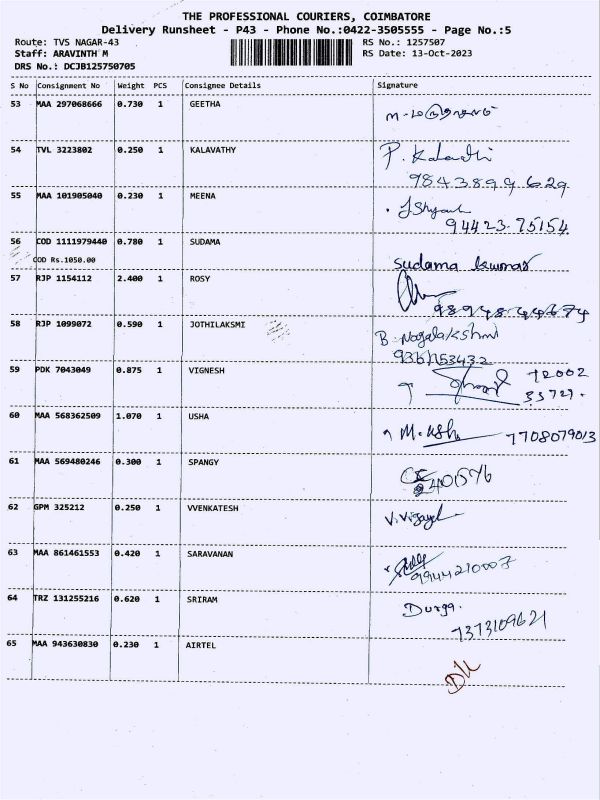 THE PROFESSIONAL COURIERS, COIMBATORE
Delivery Runsheet - P43 - Phone No.:0422-3505555 - Page No.:5
Route: TVS NAGAR-43 RS No.: 1257507
Staff: ARAVINTH M RS Date: 13-Oct-2023
DRS No.: DCJB125750705
S No Consignment No Weight PCS Consignee Details Signature
53 MAA 297068666 0.730 1 GEETHA
54 TVL 3223802 0.250 1 KALAVATHY P. Kalavathi
9843899629
55 MAA 101905040 0.230 1 MEENA
94423 75154
56 COD 1111979440 0.780 1 SUDAMA
COD Rs.1050.00 Sudama kumar
57 RJP 1154112 2.400 1 ROSY
9894844674
58 RJP 1099072 0.590 1 JOTHILAKSMI B. Nagalakshmi
59 PDK 7043049 0.875 1 VIGNESH 72002
33727.
60 MAA 568362509 1.070 1 USHA M. Usha 7708079013
61 MAA 569480246 0.300 1 SPANGY
62 GPM 325212 0.250 1 VVENKATESH
63 MAA 861461553 0.420 1 SARAVANAN
9944210007
64 TRZ 131255216 0.620 1 SRIRAM Durga.
7373109621
65 MAA 943630830 0.230 1 AIRTEL